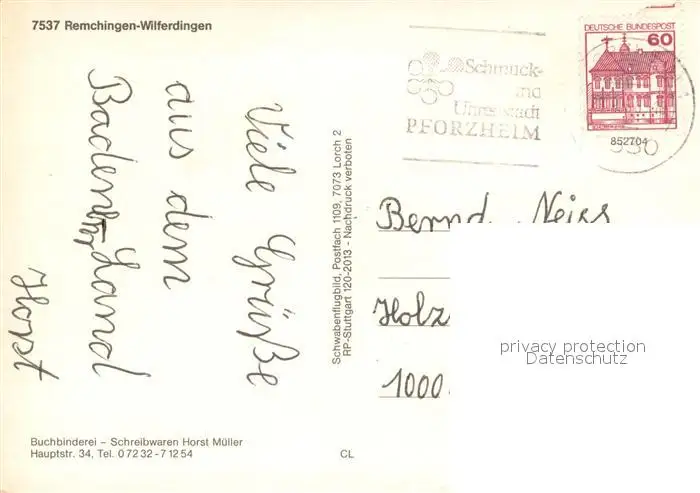 7537 Remchingen-Wilferdingen
DEUTSCHE BUNDESPOST
60
Schmuck-
und
Uhrenstadt
PFORZHEIM
852704
530
Viele Grüße
aus dem
Badener Land
Horst
Schwabenflugbild, Postfach 1109, 7073 Lorch 2
RP-Stuttgart 120-2013 - Nachdruck verboten
Bernd Neiss
Holz
1000
privacy protection
Datenschutz
Buchbinderei – Schreibwaren Horst Müller
Hauptstr. 34, Tel. 0 72 32 - 7 12 54
CL